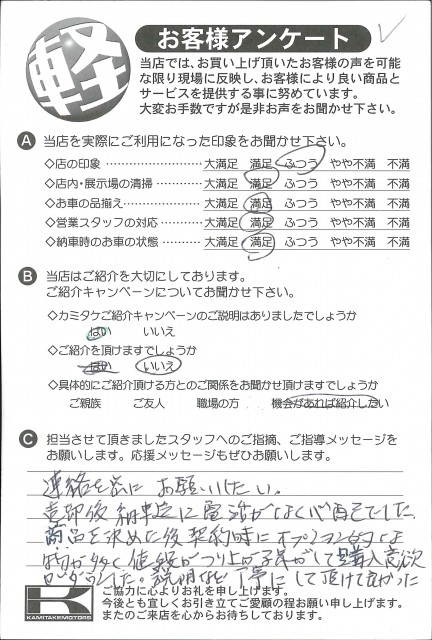 軽
お客様アンケート
当店では、お買い上げ頂いたお客様の声を可能
な限り現場に反映し、お客様により良い商品と
サービスを提供する事に努めています。
大変お手数ですが是非お声をお聞かせ下さい。
A 当店を実際にご利用になった印象をお聞かせ下さい。
◇店の印象 ‥‥‥‥‥‥‥ 大満足 満足 ふつう やや不満 不満
◇店内・展示場の清掃 ‥‥‥ 大満足 満足 ふつう やや不満 不満
◇お車の品揃え ‥‥‥‥‥ 大満足 満足 ふつう やや不満 不満
◇営業スタッフの対応 ‥‥‥ 大満足 満足 ふつう やや不満 不満
◇納車時のお車の状態 ‥‥‥ 大満足 満足 ふつう やや不満 不満
B 当店はご紹介を大切にしております。
ご紹介キャンペーンについてお聞かせ下さい。
◇カミタケご紹介キャンペーンのご説明はありましたでしょうか
はい いいえ
◇ご紹介を頂けますでしょうか
はい いいえ
◇具体的にご紹介頂ける方とのご関係をお聞かせ頂けますでしょうか
ご親族 ご友人 職場の方 機会があれば紹介したい
C 担当させて頂きましたスタッフへのご指摘、ご指導メッセージを
お願いします。応援メッセージもぜひお願いします。
連絡を密に お願いしたい。
後 納車迄に電話がなく心配でした
商品を決めた後 契約時にオプション的な
物が多く値段がつり上がる感がして購入意欲
ダウンした。説明など丁寧にして頂けて良かった
ご協力に心よりお礼を申し上げます。
今後とも宜しくお引き立てご愛顧の程お願い申し上げます。
またのご来店を心からお待ちしております。
K
KAMITAKEMOTORS